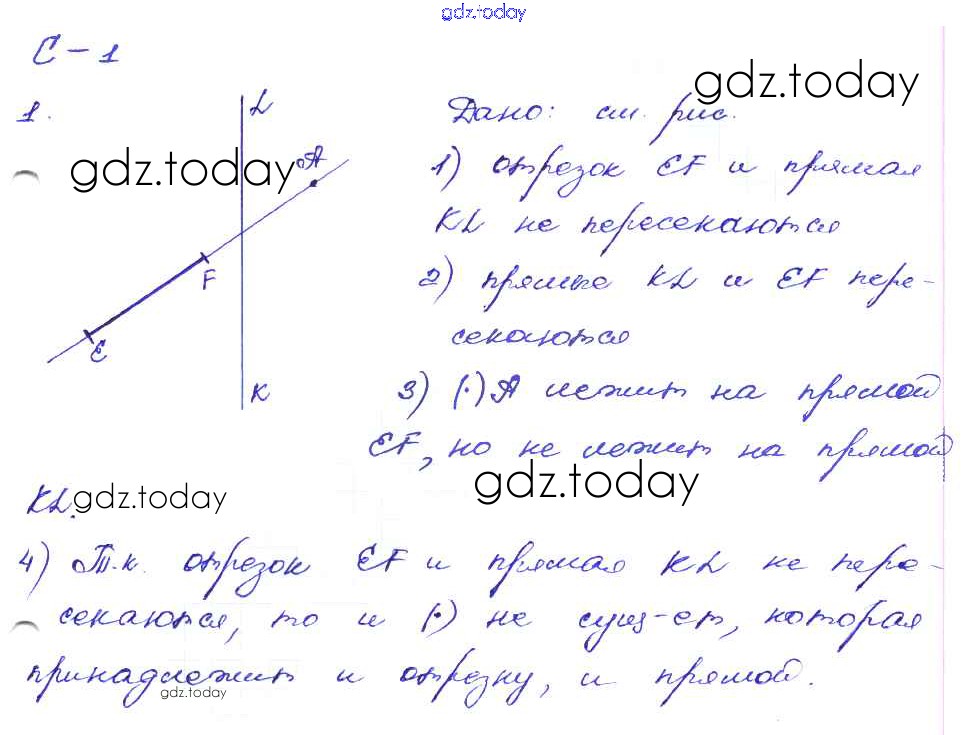 gdz.today
С-1
1.
L
Дано: см. рис.
gdz.today
gdz.today
A
1) отрезок EF и прямая
KL не пересекаются
F
2) прямые KL и EF пере-
секаются
E
K
3) (·) A лежит на прямой
EF, но не лежит на прямой
gdz.today
KL.
gdz.today
4) Т.к. отрезок EF и прямая KL не пере-
секаются, то и (·) не сущ-ет, которая
принадлежит и отрезку, и прямой.
gdz.today